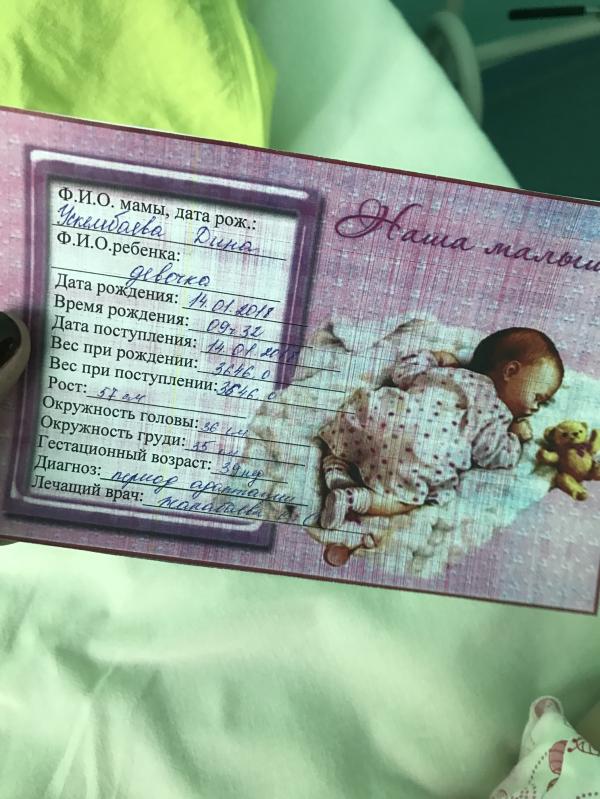 Наша малыш
Ф.И.О. мамы, дата рож.:
Дина
Ф.И.О.ребенка:
девочка
Дата рождения: 14.01.2018
Время рождения: 09ч 32
Дата поступления: 14.01.2018
Вес при рождении: 3646,0
Вес при поступлении: 3646,0
Рост: 57 см
Окружность головы: 36 см
Окружность груди: 35 см
Гестационный возраст: 39 нед
Диагноз: период адаптации
Лечащий врач: